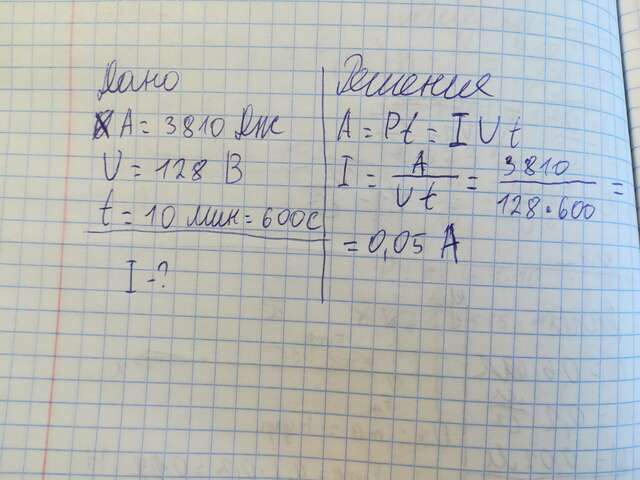 Дано
A = 3810 Дж
U = 128 В
t = 10 мин = 600с
I - ?
Решения
A = Pt = I U t
I = A / U t = 3810 / 128 · 600 =
= 0,05 A